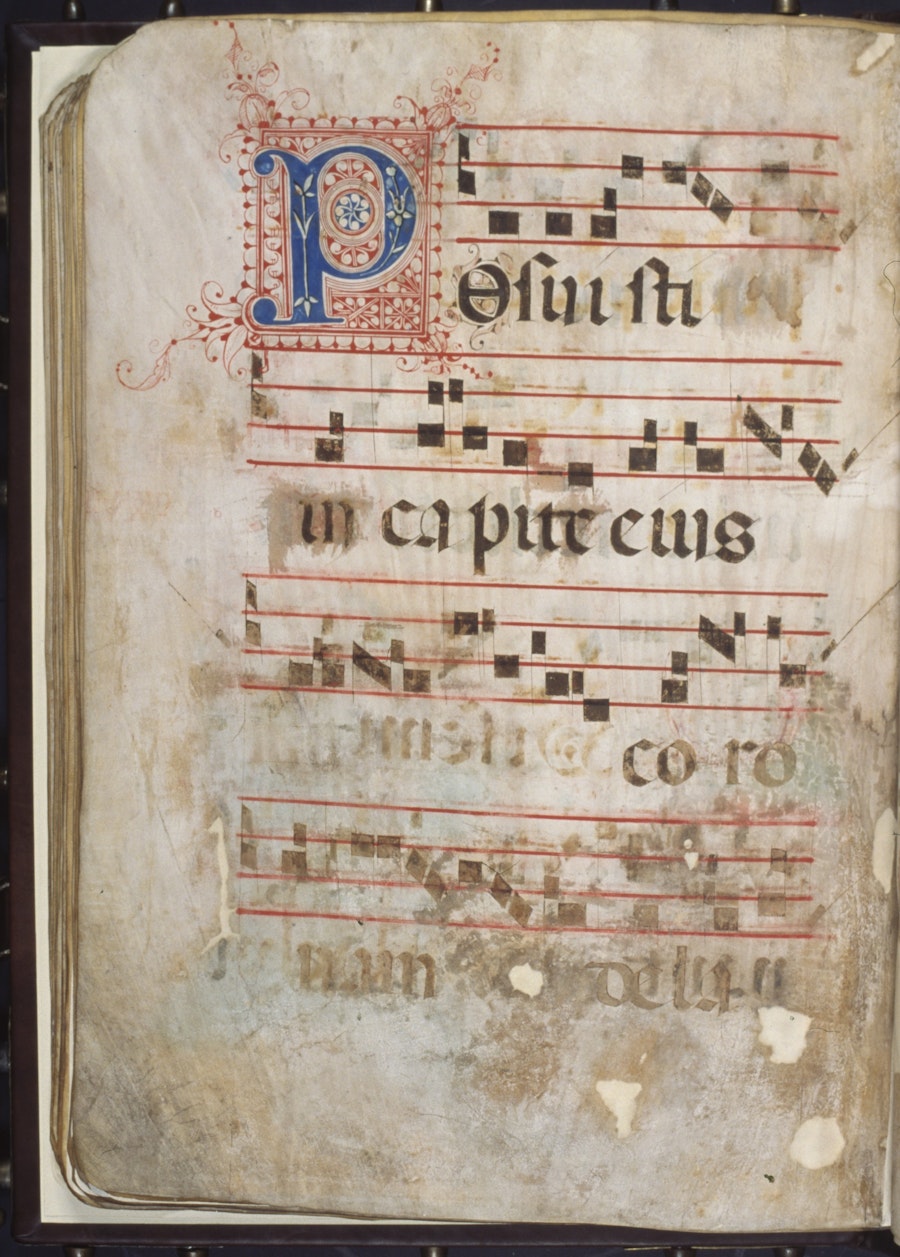 Posuisti
in capite eius
coro
nam de la